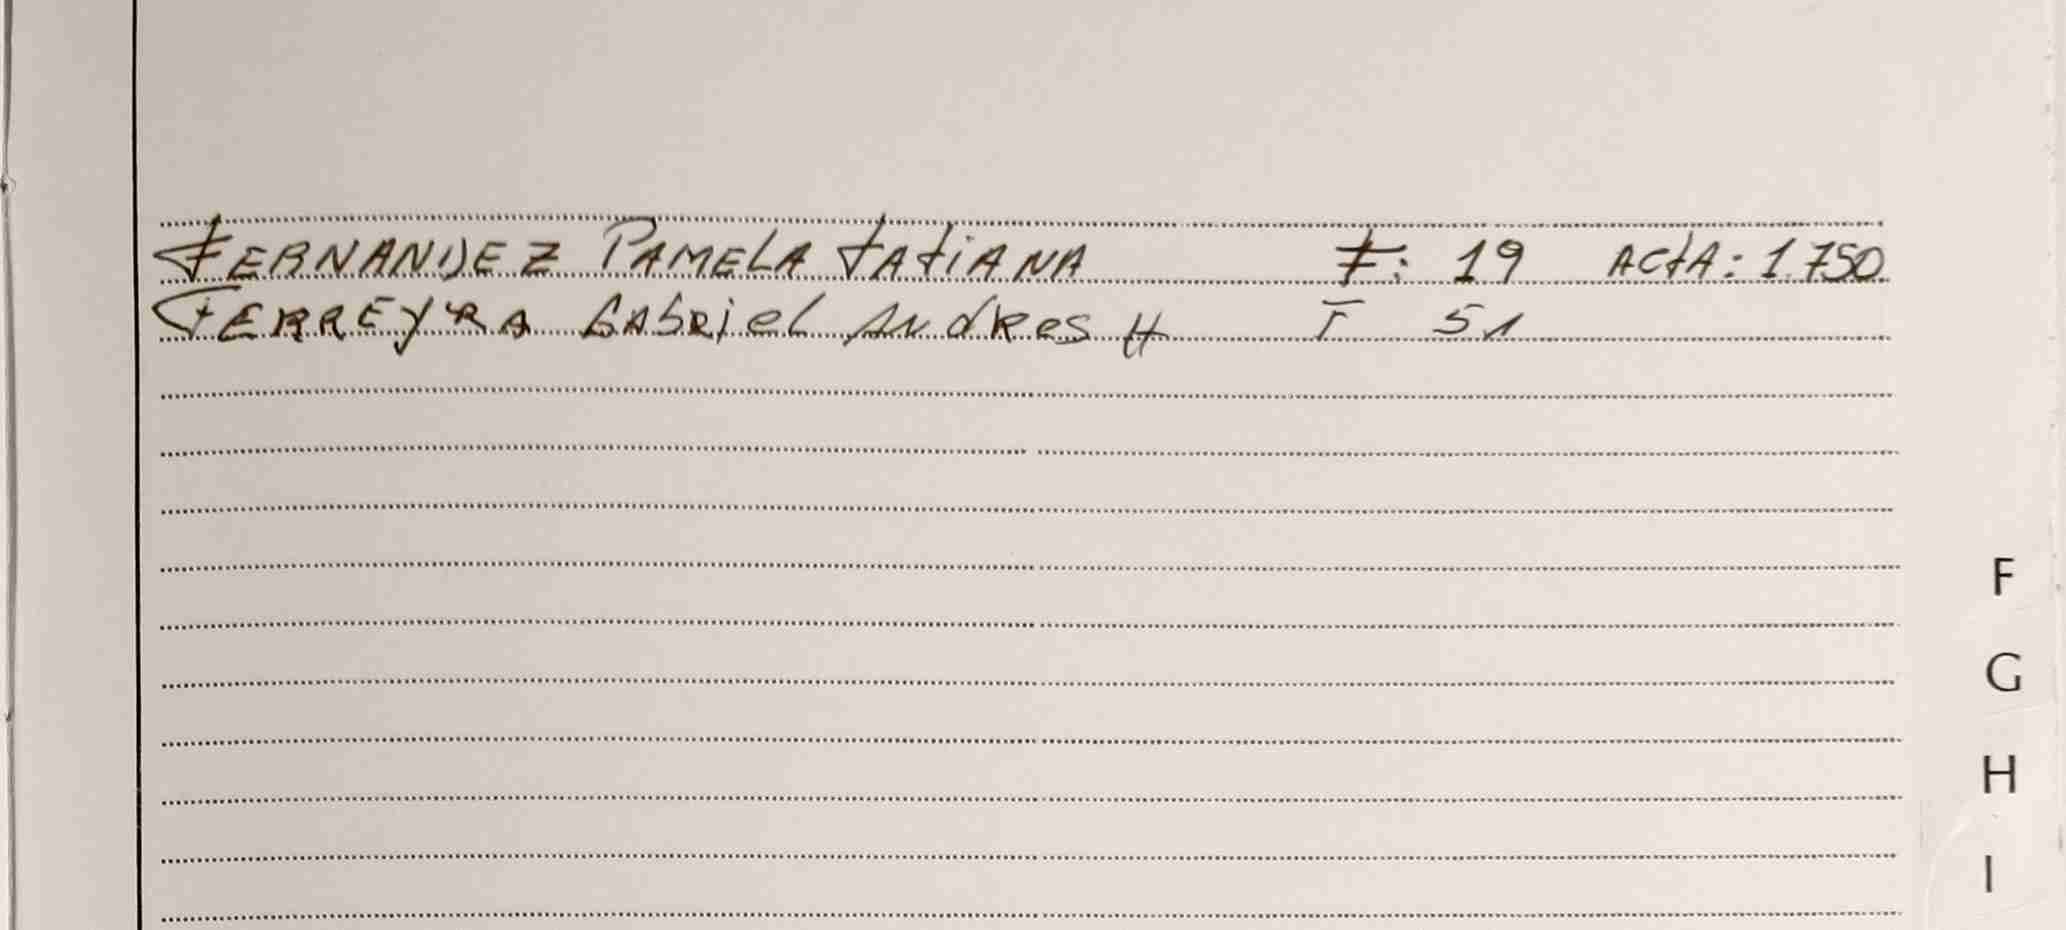 FERNANDEZ PAMELA tAtiANA F: 19 ActA: 1.750
FERREYRA GAbRiel AndRes H F 51
F
G
H
I